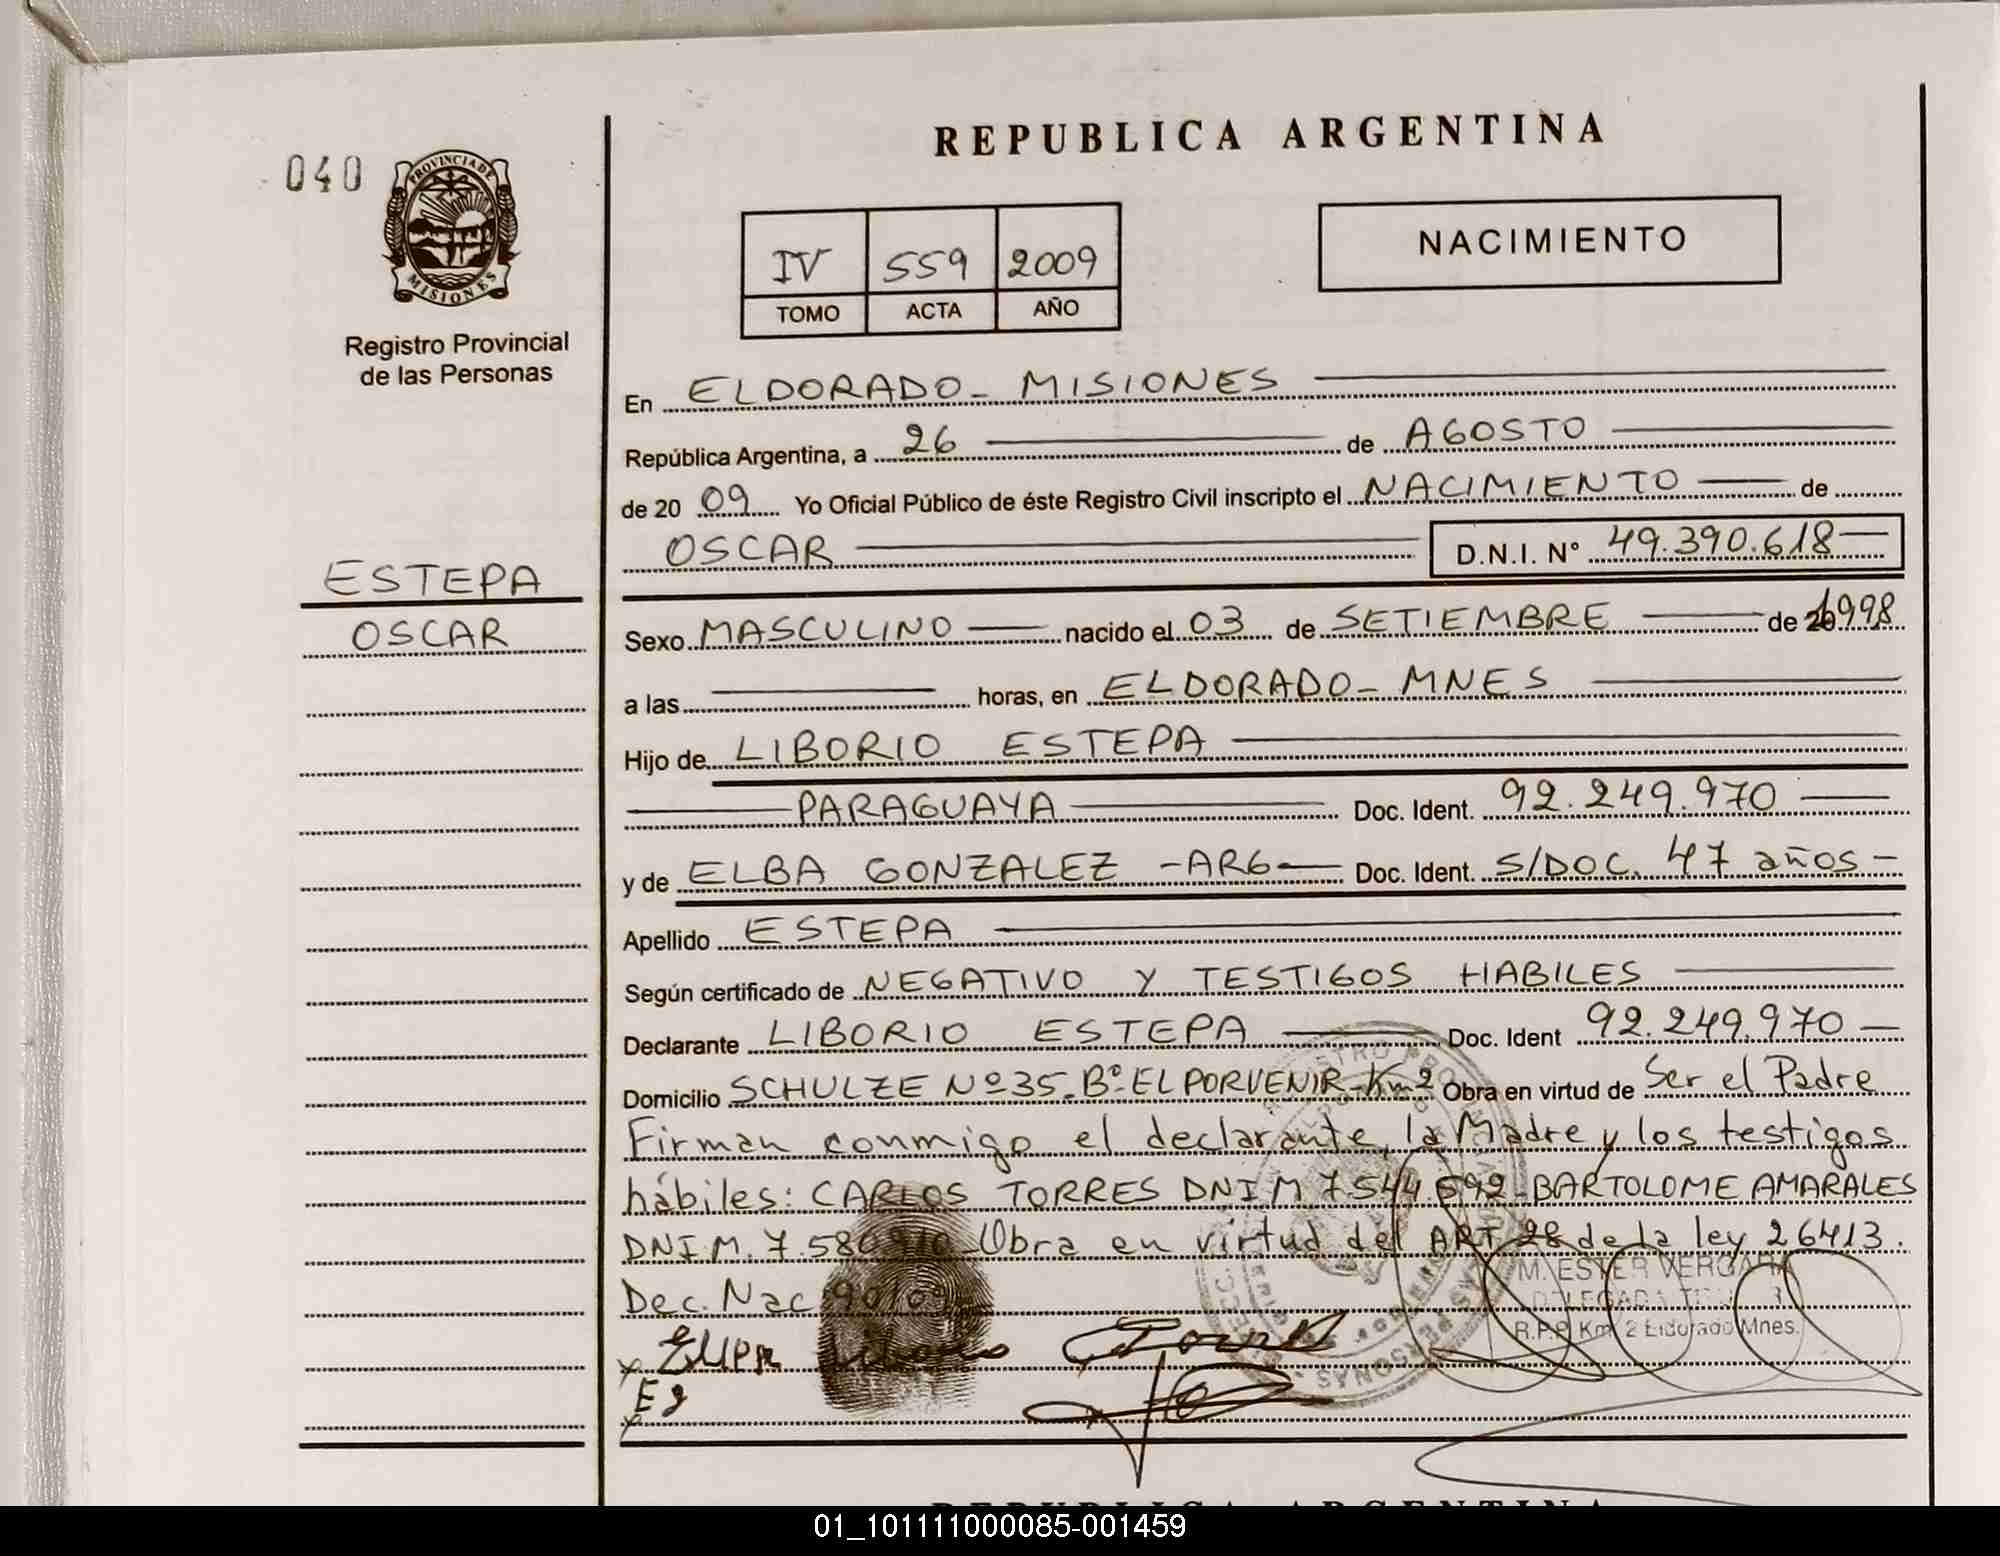 REPUBLICA ARGENTINA
040
PROVINCIA DE
MISIONES
Registro Provincial
de las Personas
IV 559 2009
TOMO ACTA AÑO
NACIMIENTO
ESTEPA
OSCAR
En ELDORADO - MISIONES
República Argentina, a 26 de AGOSTO
de 2009 Yo Oficial Público de éste Registro Civil inscripto el NACIMIENTO de
OSCAR D.N.I. N° 49.390.618
Sexo MASCULINO nacido el 03 de SETIEMBRE de 1998
a las horas, en ELDORADO - MNES
Hijo de LIBORIO ESTEPA
PARAGUAYA Doc. Ident. 92.249.970
y de ELBA GONZALEZ - ARG Doc. Ident. S/DOC. 47 años -
Apellido ESTEPA
Según certificado de NEGATIVO Y TESTIGOS HABILES
Declarante LIBORIO ESTEPA Doc. Ident 92.249.970
Domicilio SCHULZE Nº 35. Bº EL PORVENIR - Km 2 Obra en virtud de Ser el Padre
Firman conmigo el declarante, la Madre y los testigos
hábiles: CARLOS TORRES DNI M 7.544.592 - BARTOLOME AMARALES
DNI M. 7.58 Obra en virtud del ART 28 de la ley 26413.
Dec. Nac.
M. ESTER VERGARA
DELEGADA
R.P.P. Km. 2 Eldorado Mnes.
REPUBLICA ARGENTINA
01_101111000085-001459